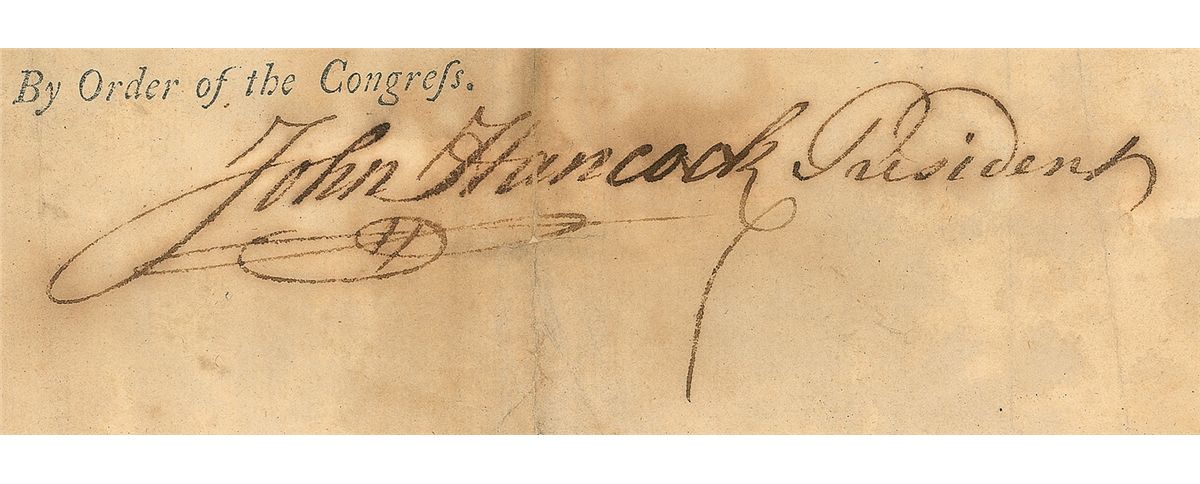 By Order of the Congreſs.
John Hancock President